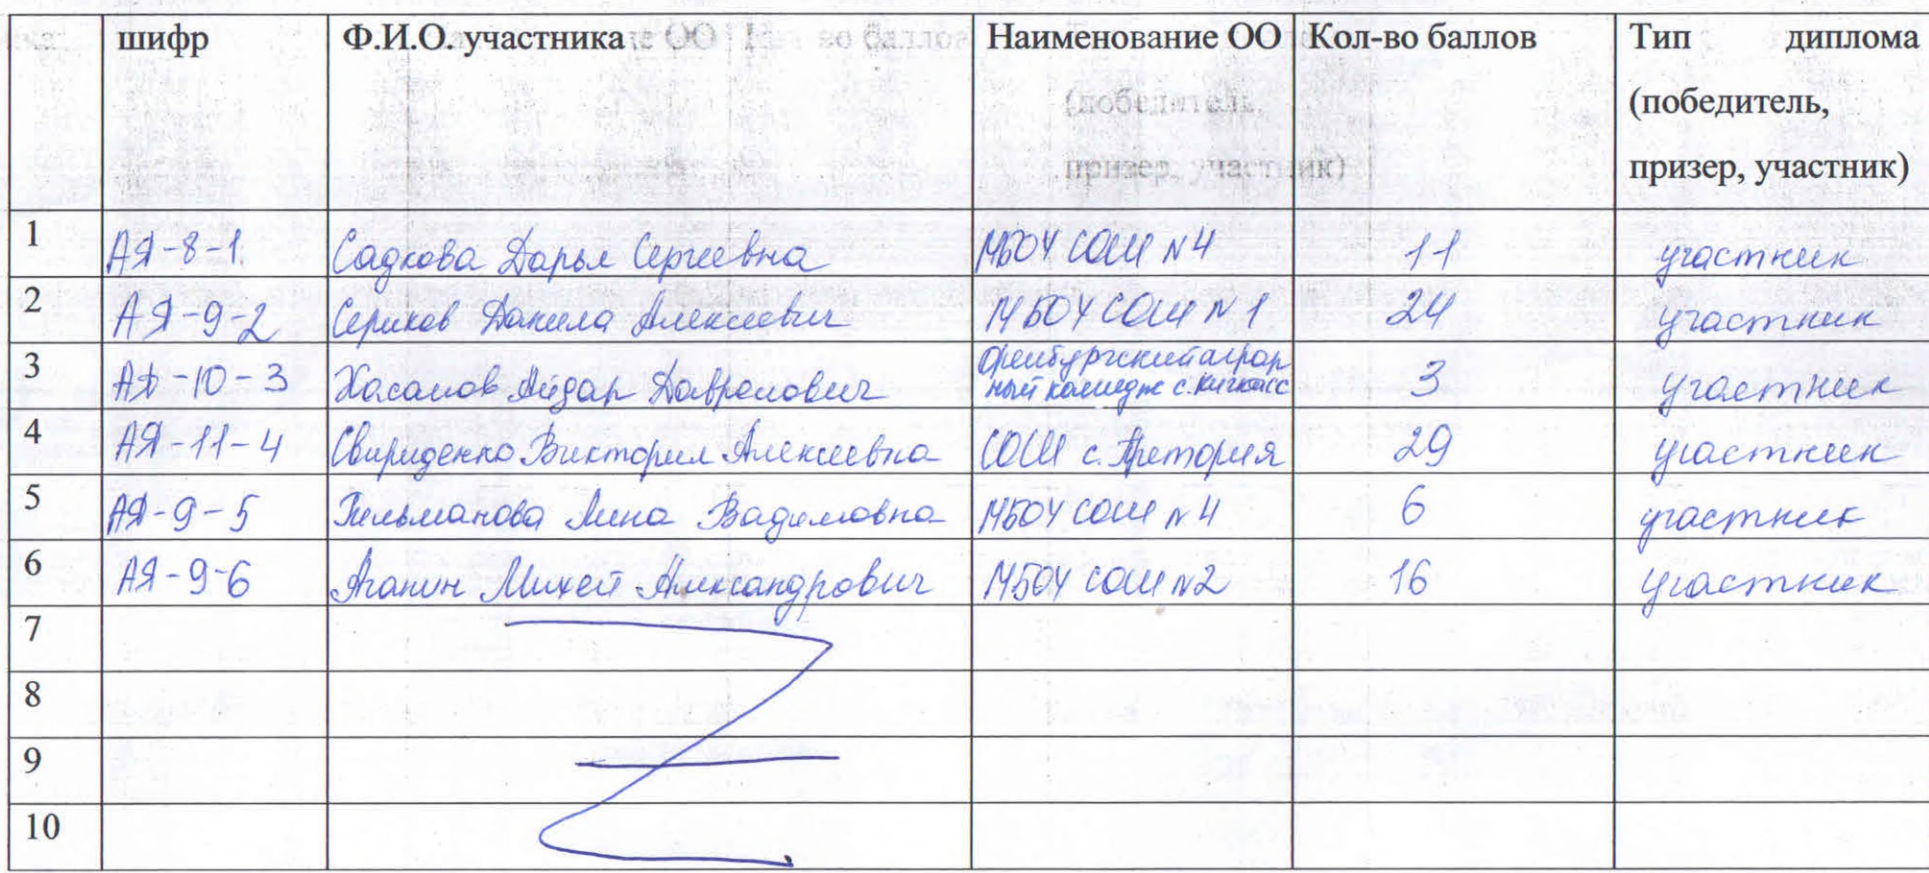 шифр Ф.И.О.участника Наименование ОО Кол-во баллов Тип диплома
(победитель,
призер, участник)
1 АЯ-8-1 Садкова Дарья Сергеевна МБОУ СОШ №4 11 участник
2 АЯ-9-2 Сериков Данила Алексеевич МБОУ СОШ №1 24 участник
3 АЯ-10-3 Хасанов Айдар Давронович Оренбургский аграр
ный колледж с. 3 участник
4 АЯ-11-4 Свириденко Виктория Алексеевна СОШ с. Претория 29 участник
5 АЯ-9-5 Тильманова Лина Вадимовна МБОУ СОШ №4 6 участник
6 АЯ-9-6 Аганин Михей Александрович МБОУ СОШ №2 16 участник
7
8
9
10